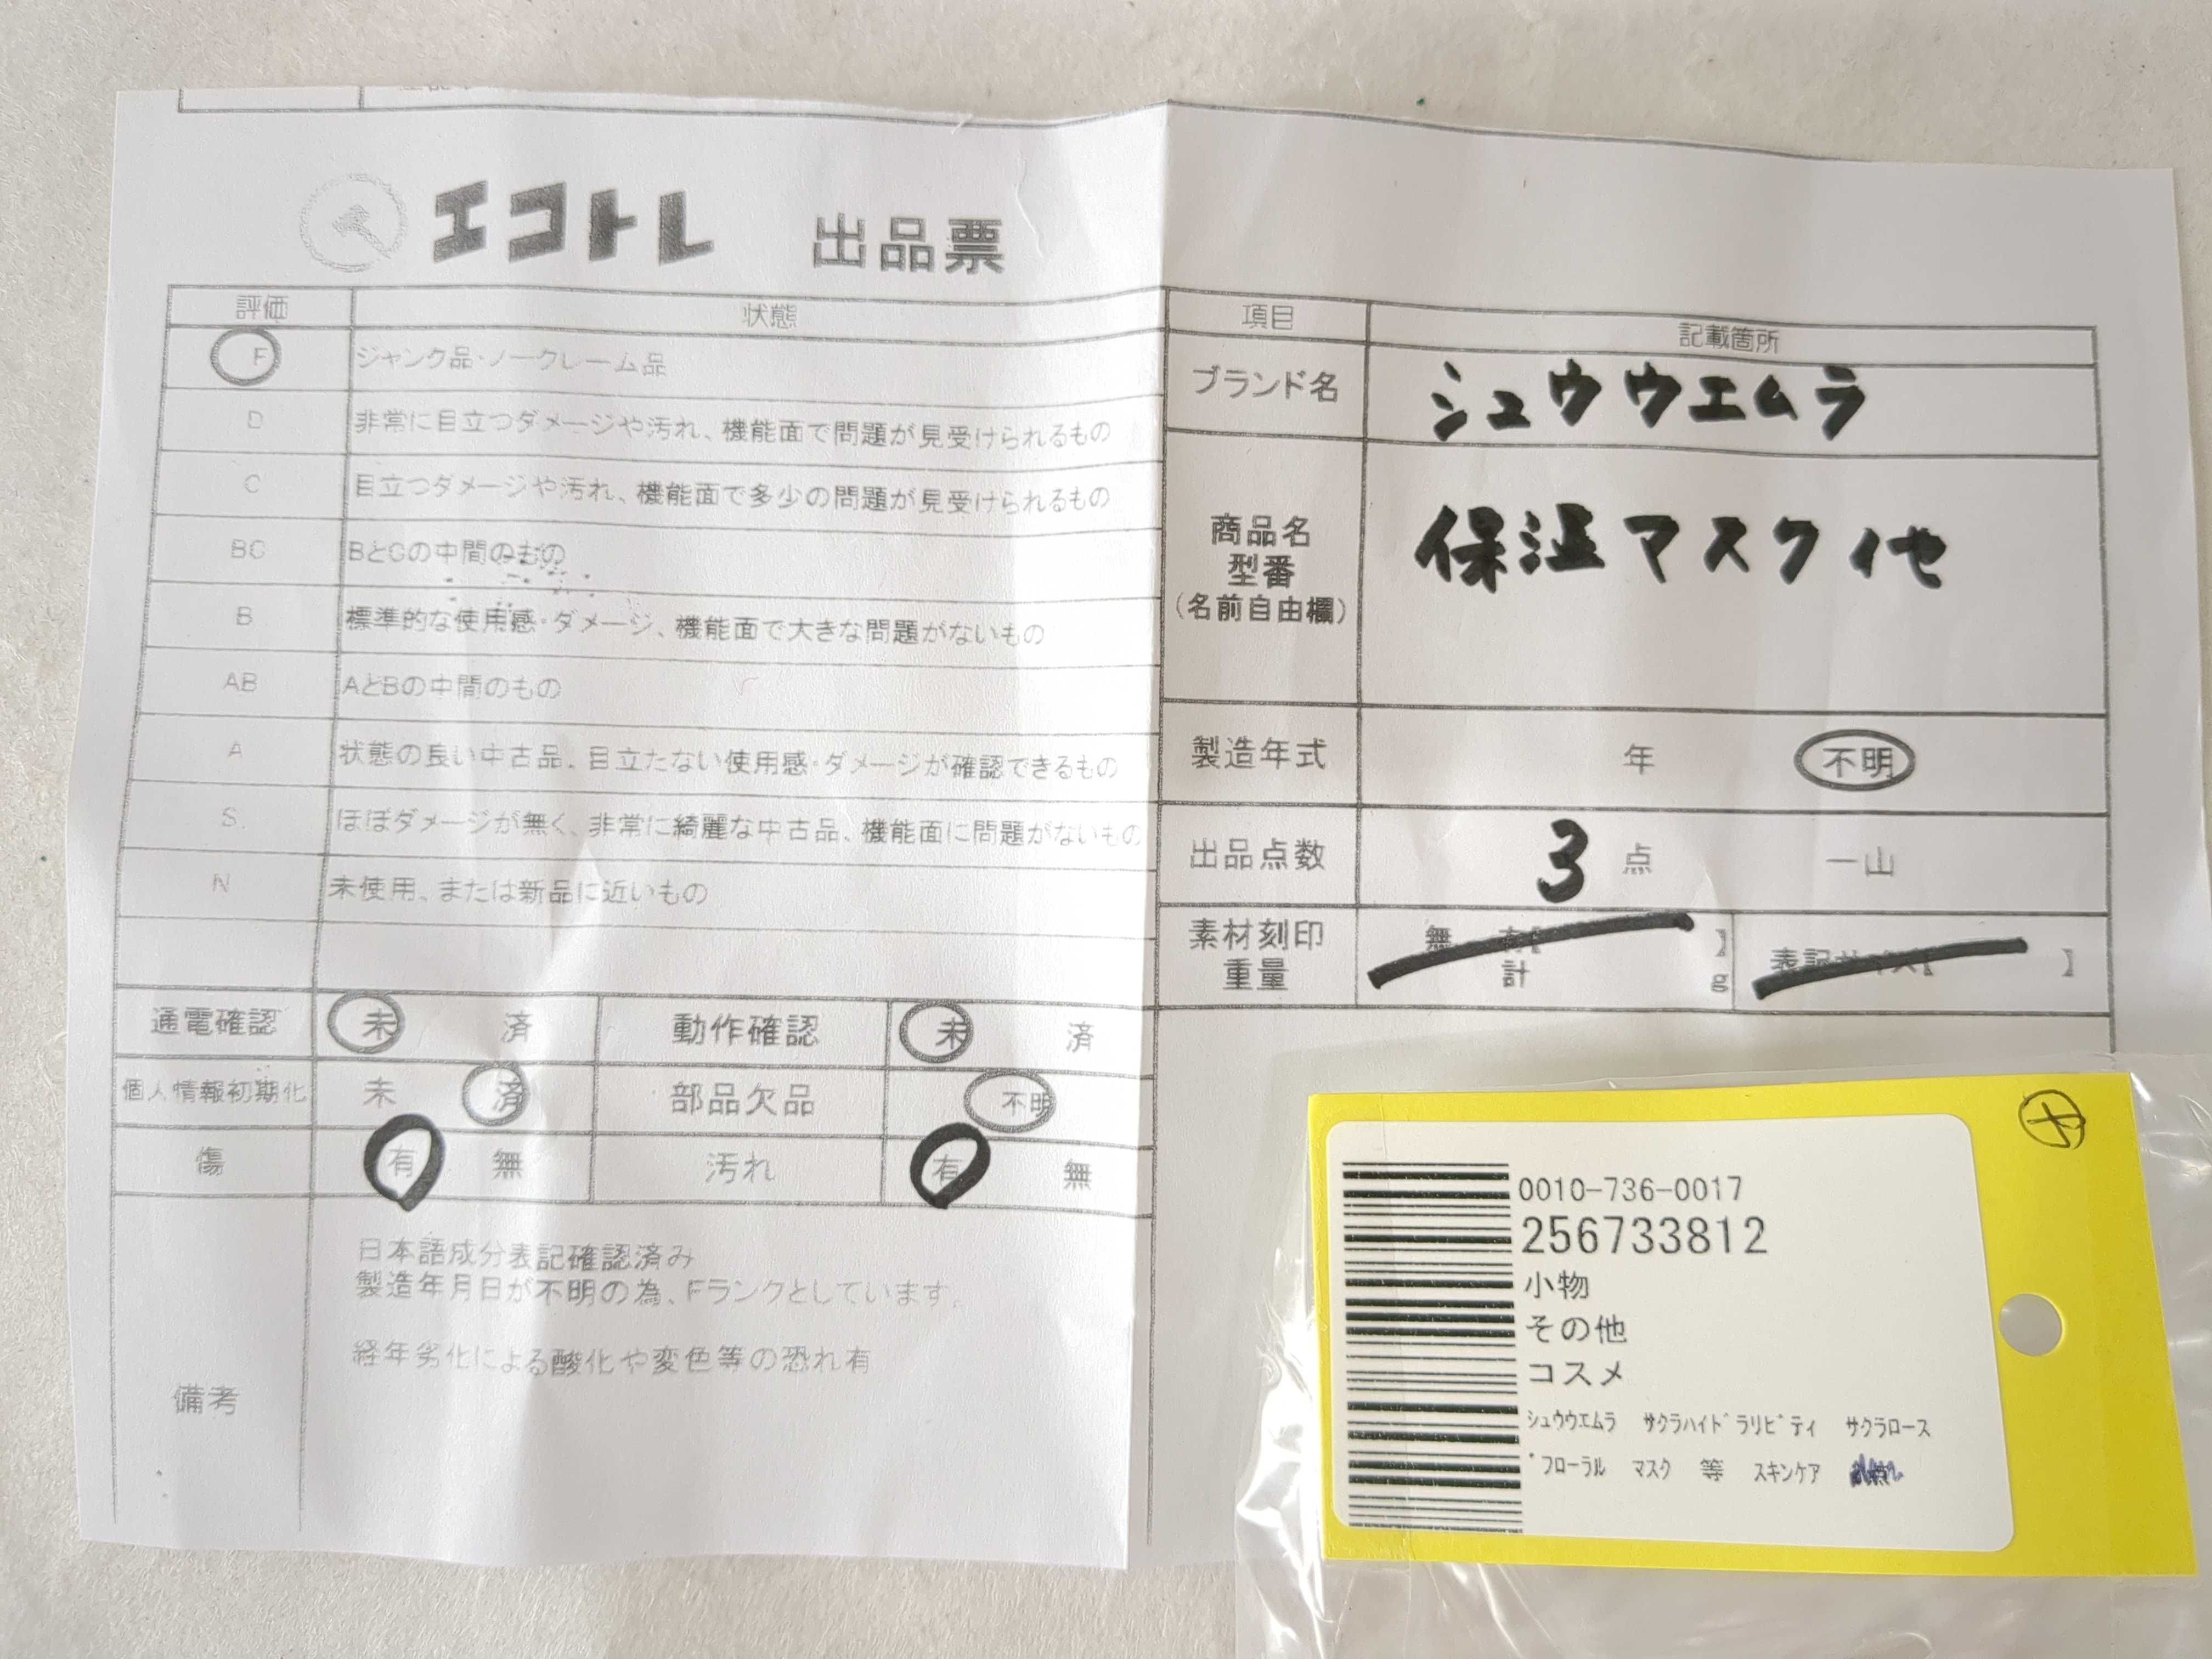 エコトレ 出品票
評価 状態
F ジャンク品・ノークレーム品
D 非常に目立つダメージや汚れ、機能面で問題が見受けられるもの
C 目立つダメージや汚れ、機能面で多少の問題が見受けられるもの
BC BとCの中間のもの
B 標準的な使用感・ダメージ、機能面で大きな問題がないもの
AB AとBの中間のもの
A 状態の良い中古品、目立たない使用感・ダメージが確認できるもの
S ほぼダメージが無く、非常に綺麗な中古品、機能面に問題がないもの
N 未使用、または新品に近いもの
通電確認 未 済 動作確認 未 済
個人情報初期化 未 済 部品欠品 不明
傷 有 無 汚れ 有 無
備考
日本語成分表記確認済み
製造年月日が不明の為、Fランクとしています。
経年劣化による酸化や変色等の恐れ有
項目 記載箇所
ブランド名 シュウウエムラ
商品名
型番
(名前自由欄)
保湿マスク 他
製造年式 年 不明
出品点数 3 点 一山
素材刻印 無 有【 】 表記サイズ【 】
重量 計 g
0010-736-0017
256733812
小物
その他
コスメ
シュウウエムラ サクラハイドラリビティ サクラロース
゛フローラル マスク 等 スキンケア